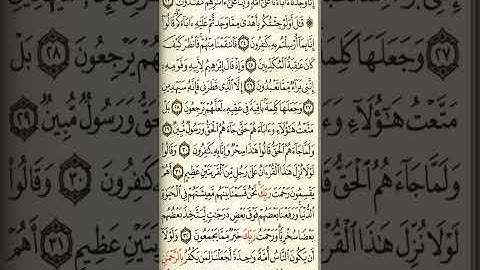 إِنَّا وَجَدْنَآ ءَابَآءَنَا عَلَىٰٓ أُمَّةٍ وَإِنَّا عَلَىٰٓ ءَاثَٰرِهِم مُّقْتَدُونَ ٢٣
۞ قَٰلَ أَوَلَوْ جِئْتُكُم بِأَهْدَىٰ مِمَّا وَجَدتُّمْ عَلَيْهِ ءَابَآءَكُمْ قَالُوٓا۟
إِنَّا بِمَآ أُرْسِلْتُم بِهِۦ كَٰفِرُونَ ٢٤ فَٱنتَقَمْنَا مِنْهُمْ فَٱنظُرْ كَيْفَ
كَانَ عَٰقِبَةُ ٱلْمُكَذِّبِينَ ٢٥ وَإِذْ قَالَ إِبْرَٰهِيمُ لِأَبِيهِ وَقَوْمِهِۦٓ
إِنَّنِى بَرَآءٌ مِّمَّا تَعْبُدُونَ ٢٦ إِلَّا ٱلَّذِى فَطَرَنِى فَإِنَّهُۥ سَيَهْدِينِ
٢٧ وَجَعَلَهَا كَلِمَةًۢ بَاقِيَةً فِى عَقِبِهِۦ لَعَلَّهُمْ يَرْجِعُونَ ٢٨ بَلْ
مَتَّعْتُ هَٰٓؤُلَآءِ وَءَابَآءَهُمْ حَتَّىٰ جَآءَهُمُ ٱلْحَقُّ وَرَسُولٌ مُّبِينٌ ٢٩
وَلَمَّا جَآءَهُمُ ٱلْحَقُّ قَالُوا۟ هَٰذَا سِحْرٌ وَإِنَّا بِهِۦ كَٰفِرُونَ ٣٠ وَقَالُوا۟
لَوْلَا نُزِّلَ هَٰذَا ٱلْقُرْءَانُ عَلَىٰ رَجُلٍ مِّنَ ٱلْقَرْيَتَيْنِ عَظِيمٍ ٣١ أَهُمْ
يَقْسِمُونَ رَحْمَتَ رَبِّكَ نَحْنُ قَسَمْنَا بَيْنَهُم مَّعِيشَتَهُمْ فِى ٱلْحَيَوٰةِ
ٱلدُّنْيَا وَرَفَعْنَا بَعْضَهُمْ فَوْقَ بَعْضٍ دَرَجَٰتٍ لِّيَتَّخِذَ بَعْضُهُم
بَعْضًا سُخْرِيًّا وَرَحْمَتُ رَبِّكَ خَيْرٌ مِّمَّا يَجْمَعُونَ ٣٢ وَلَوْلَآ
أَن يَكُونَ ٱلنَّاسُ أُمَّةً وَٰحِدَةً لَّجَعَلْنَا لِمَن يَكْفُرُ بِٱلرَّحْمَٰنِ